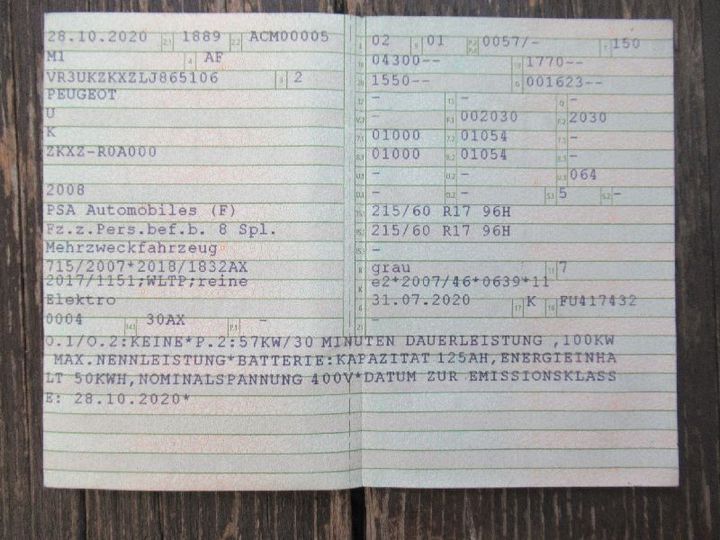 28.10.2020 2.1 1889 2.2 ACM00005
M1 4 AF
VR3UKZKXZLJ865106 3 2
PEUGEOT
U
K
ZKXZ-R0A000
2008
PSA Automobiles (F)
Fz.z.Pers.bef.b. 8 Spl.
Mehrzweckfahrzeug
715/2007*2018/1832AX
2017/1151;WLTP;reine
Elektro
0004 14.1 30AX P.1 -
02 9 01 P.2 P.4 0057/- T 150
18 04300-- 19 1770--
20 1550-- G 001623--
12 - 13 - Q -
V.7 - F.1 002030 F.2 2030
7.1 01000 7.2 01054 7.3 -
8.1 01000 8.2 01054 8.3 -
U.1 - U.2 - U.3 064
O.1 - O.2 - S.1 5 S.2 -
15.1 215/60 R17 96H
15.2 215/60 R17 96H
15.3 -
R grau 11 7
K e2*2007/46*0639*11
6 31.07.2020 17 K 16 FU417432
21 -
O.1/O.2:KEINE*P.2:57KW/30 MINUTEN DAUERLEISTUNG ,100KW
MAX.NENNLEISTUNG*BATTERIE:KAPAZITAT 125AH,ENERGIEINHA
LT 50KWH,NOMINALSPANNUNG 400V*DATUM ZUR EMISSIONSKLASS
E: 28.10.2020*